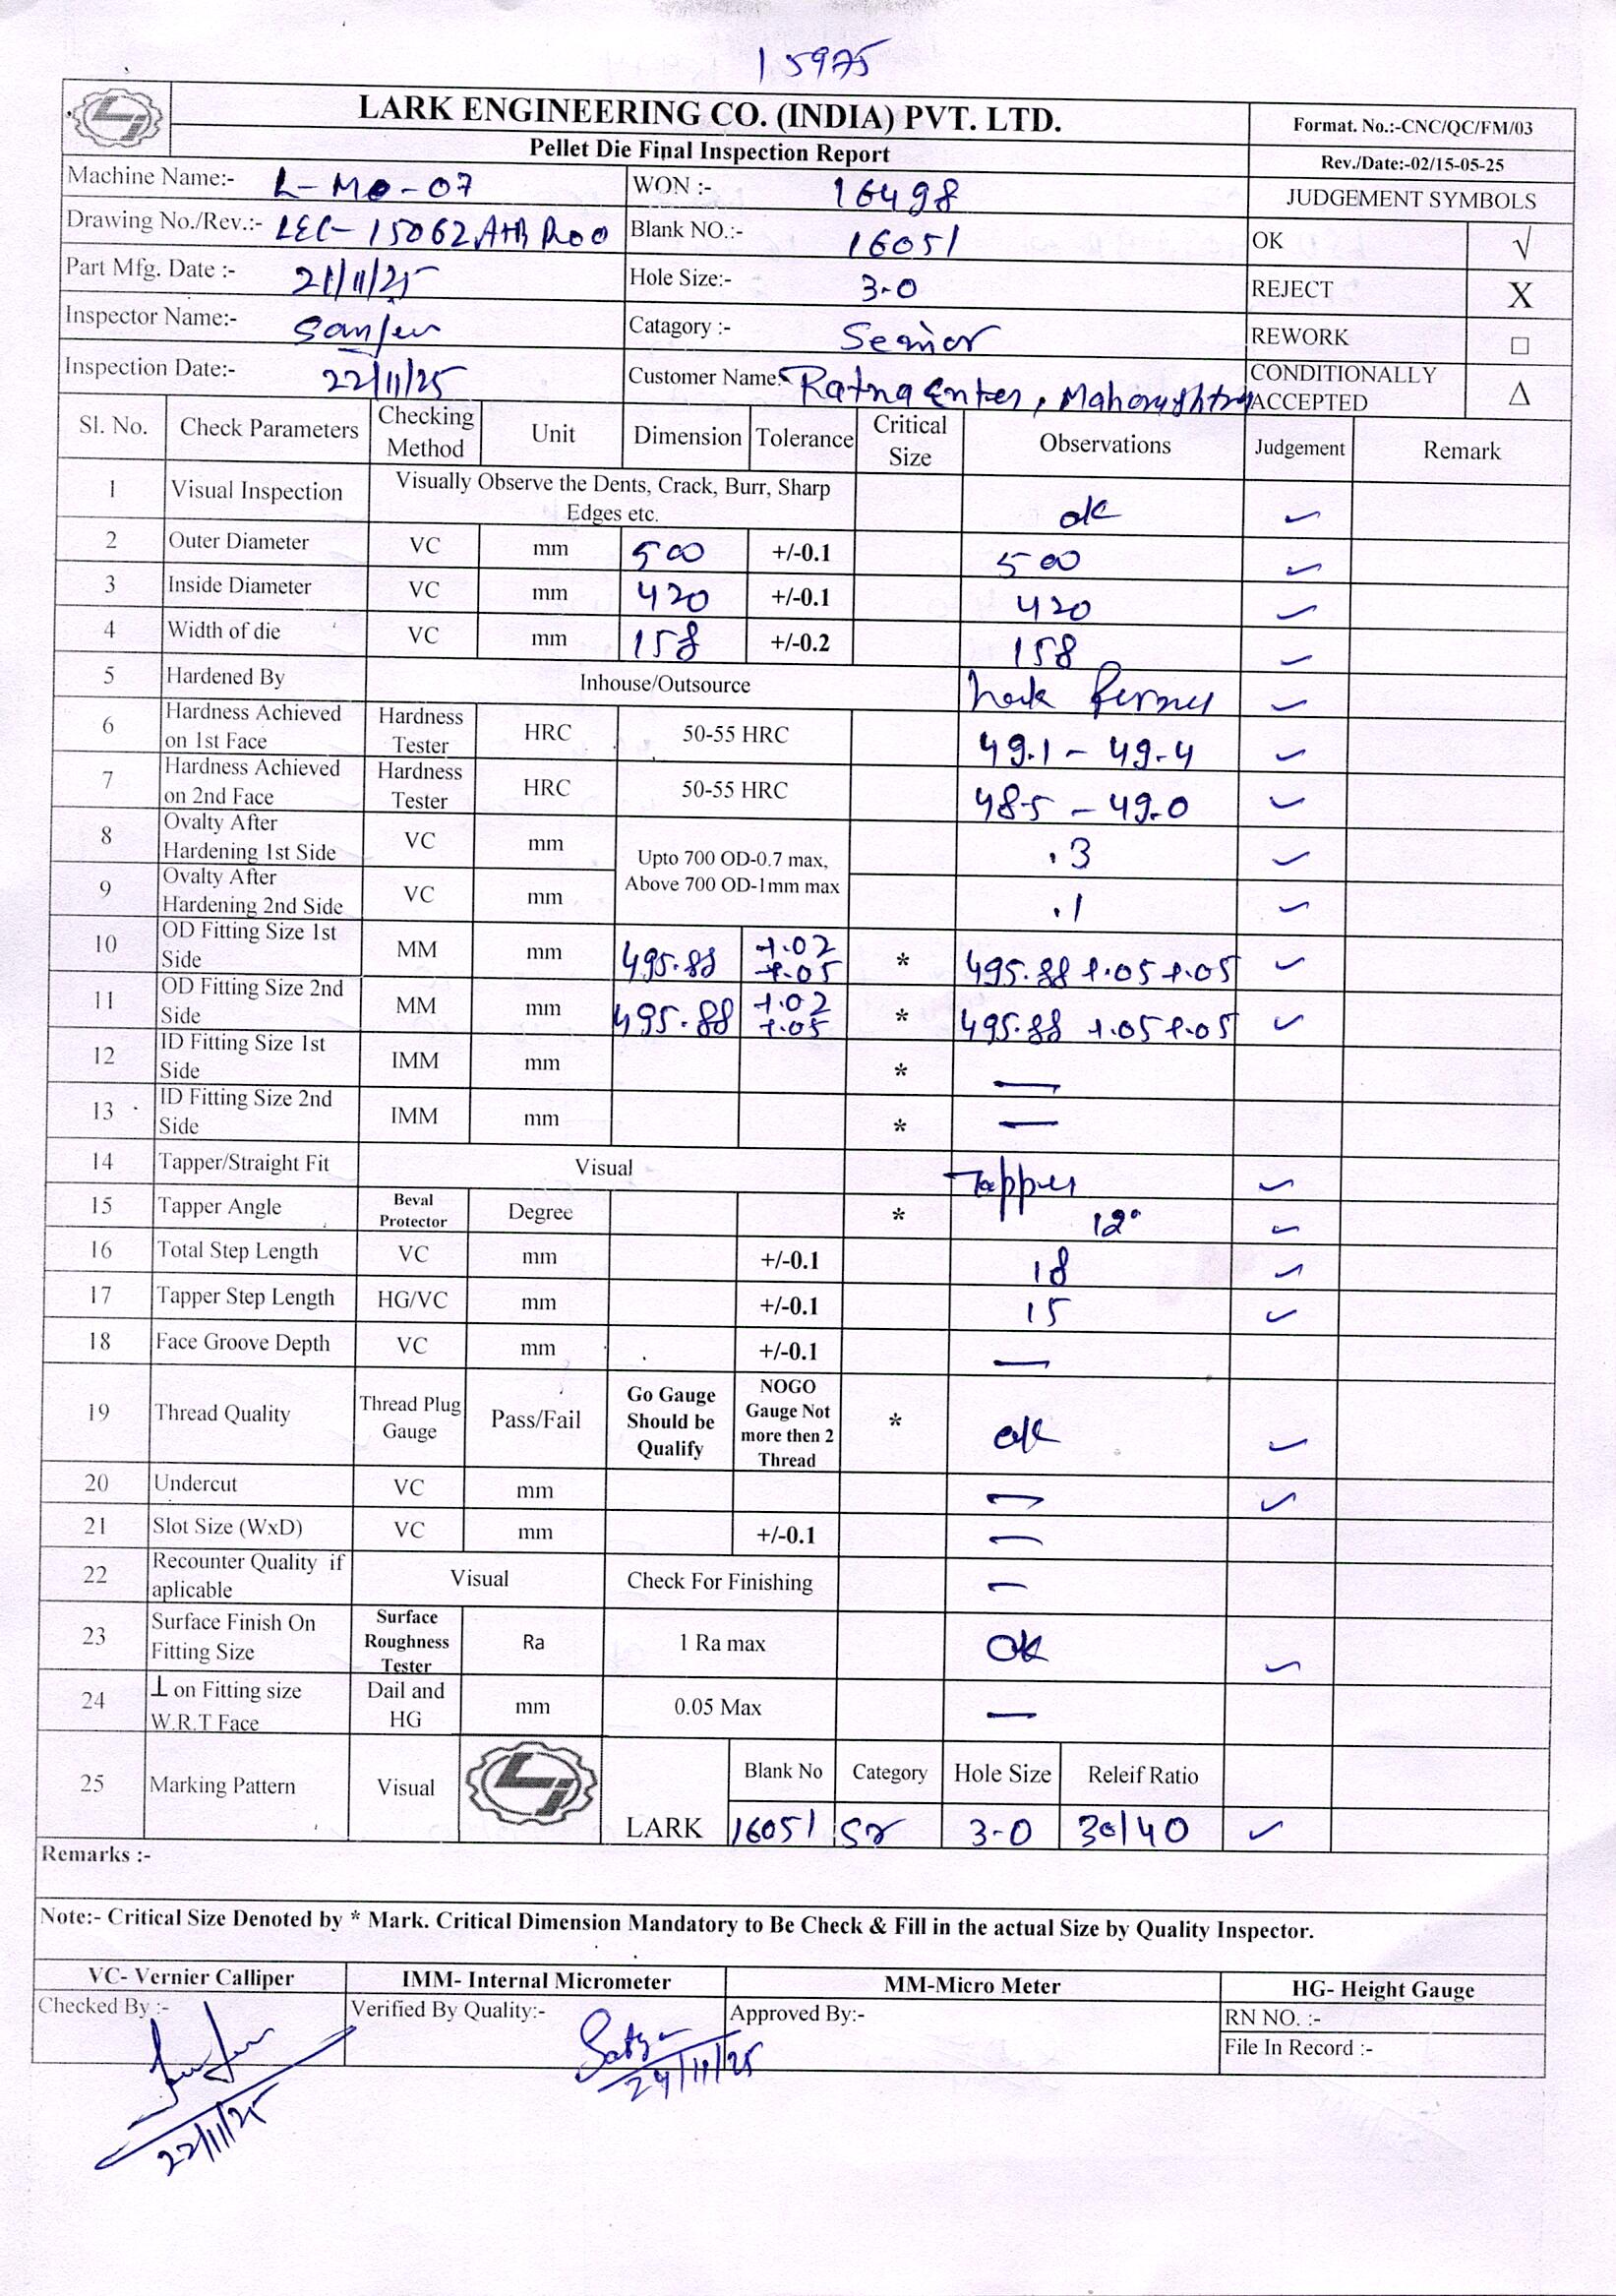 15975
LARK ENGINEERING CO. (INDIA) PVT. LTD.
Format. No.:-CNC/QC/FM/03
Pellet Die Final Inspection Report
Rev./Date:-02/15-05-25
Machine Name:- L-MO-07 WON :- 16498 JUDGEMENT SYMBOLS
Drawing No./Rev.:- LEC-15062A+B R00 Blank NO.:- 16051 OK √
Part Mfg. Date :- 21/11/25 Hole Size:- 3-0 REJECT X
Inspector Name:- Catagory :- Senior REWORK □
Inspection Date:- 22/11/25 Customer Name:- Ratna Enter, Maharashtra CONDITIONALLY ACCEPTED Δ
Sl. No. Check Parameters Checking Method Unit Dimension Tolerance Critical Size Observations Judgement Remark
1 Visual Inspection Visually Observe the Dents, Crack, Burr, Sharp Edges etc. ok ✓
2 Outer Diameter VC mm 500 +/-0.1 500 ✓
3 Inside Diameter VC mm 420 +/-0.1 420 ✓
4 Width of die VC mm 158 +/-0.2 158 ✓
5 Hardened By Inhouse/Outsource ✓
6 Hardness Achieved on 1st Face Hardness Tester HRC 50-55 HRC 49.1 - 49.4 ✓
7 Hardness Achieved on 2nd Face Hardness Tester HRC 50-55 HRC 48.5 - 49.0 ✓
8 Ovalty After Hardening 1st Side VC mm Upto 700 OD-0.7 max, Above 700 OD-1mm max .3 ✓
9 Ovalty After Hardening 2nd Side VC mm .1 ✓
10 OD Fitting Size 1st Side MM mm 495.88 +.02 +.05 * 495.88 +.05 +.05 ✓
11 OD Fitting Size 2nd Side MM mm 495.88 +.02 +.05 * 495.88 +.05 +.05 ✓
12 ID Fitting Size 1st Side IMM mm * —
13 ID Fitting Size 2nd Side IMM mm * —
14 Tapper/Straight Fit Visual Tapper ✓
15 Tapper Angle Beval Protector Degree * 12° ✓
16 Total Step Length VC mm +/-0.1 18 ✓
17 Tapper Step Length HG/VC mm +/-0.1 15 ✓
18 Face Groove Depth VC mm +/-0.1 —
19 Thread Quality Thread Plug Gauge Pass/Fail Go Gauge Should be Qualify NOGO Gauge Not more then 2 Thread * ok ✓
20 Undercut VC mm — ✓
21 Slot Size (WxD) VC mm +/-0.1 —
22 Recounter Quality if aplicable Visual Check For Finishing —
23 Surface Finish On Fitting Size Surface Roughness Tester Ra 1 Ra max OK ✓
24 ⊥ on Fitting size W.R.T Face Dail and HG mm 0.05 Max —
25 Marking Pattern Visual LARK Blank No Category Hole Size Releif Ratio
16051 Sr 3-0 30/40 ✓
Remarks :-
Note:- Critical Size Denoted by * Mark. Critical Dimension Mandatory to Be Check & Fill in the actual Size by Quality Inspector.
VC- Vernier Calliper IMM- Internal Micrometer MM-Micro Meter HG- Height Gauge
Checked By :- Verified By Quality:- Approved By:- RN NO. :-
File In Record :-
24/11/25
22/11/25